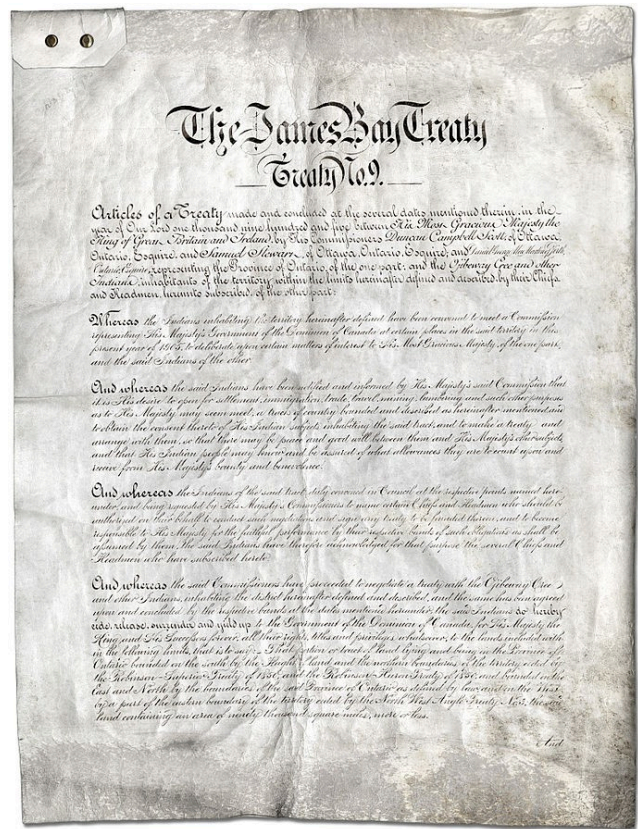 The James Bay Treaty
Treaty No. 9.
Articles of a Treaty made and concluded at the several dates mentioned therein, in the
year of Our Lord one thousand nine hundred and five between His Most Gracious Majesty the
King of Great Britain and Ireland, by His Commissioners Duncan Campbell Scott, of Ottawa,
Ontario, Esquire, and Samuel Stewart, of Ottawa, Ontario, Esquire, and Daniel George
Ontario, Esquire, representing the Province of Ontario, of the one part; and the Ojibeway Cree and other
Indians, inhabitants of the territory within the limits hereinafter defined and described, by their Chiefs
and Headmen, hereunto subscribed, of the other part:
Whereas the Indians inhabiting the territory hereinafter defined have been convened to meet a Commission
representing His Majesty's Government of the Dominion of Canada at certain places in the said territory in this
present year of 1905, to deliberate upon certain matters of interest to His Most Gracious Majesty, of the one part,
and the said Indians of the other
And whereas the said Indians have been notified and informed by His Majesty's said Commission that
it is His desire to open for settlement, immigration, trade, travel, mining, lumbering and such other purposes
as to His Majesty may seem meet, a tract of country bounded and described as hereinafter mentioned and
to obtain the consent thereto of His Indian subjects inhabiting the said tract, and to make a treaty and
arrange with them, so that there may be peace and good will between them and His Majesty's other subjects,
and that His Indian people may know and be assured of what allowances they are to count upon and
receive from His Majesty's bounty and benevolence.
And whereas the Indians of the said tract, duly convened in Council at the respective points named here
under, and being requested by His Majesty's Commissioners to name certain Chiefs and Headmen who should be
authorized on their behalf to conduct such negotiations and sign any treaty to be founded thereon, and to become
responsible to His Majesty for the faithful performance by their respective bands of such obligations as shall be
assumed by them, the said Indians have therefore acknowledged for that purpose the several Chiefs and
Headmen who have subscribed hereto.
And whereas the said Commissioners have proceeded to negotiate a treaty with the Ojibeway Cree
and other Indians, inhabiting the district hereinafter defined and described, and the same has been agreed
upon and concluded by the respective bands at the dates mentioned hereunder, the said Indians do hereby
cede, release, surrender and yield up to the Government of the Dominion of Canada, for His Majesty the
King and His Successors forever, all their rights, titles and privileges whatsoever, to the lands included within
the following limits, that is to say: That portion or tract of land lying and being in the Province of
Ontario bounded on the south by the Height of land and the northern boundaries of the territory ceded by
the Robinson-Superior Treaty of 1850, and the Robinson-Huron Treaty of 1850, and bounded on the
East and North by the boundaries of the said Province of Ontario as defined by law, and on the West
by a part of the eastern boundary of the territory ceded by the North West Angle Treaty No. 3, the said
land containing an area of ninety thousand square miles, more or less.
And